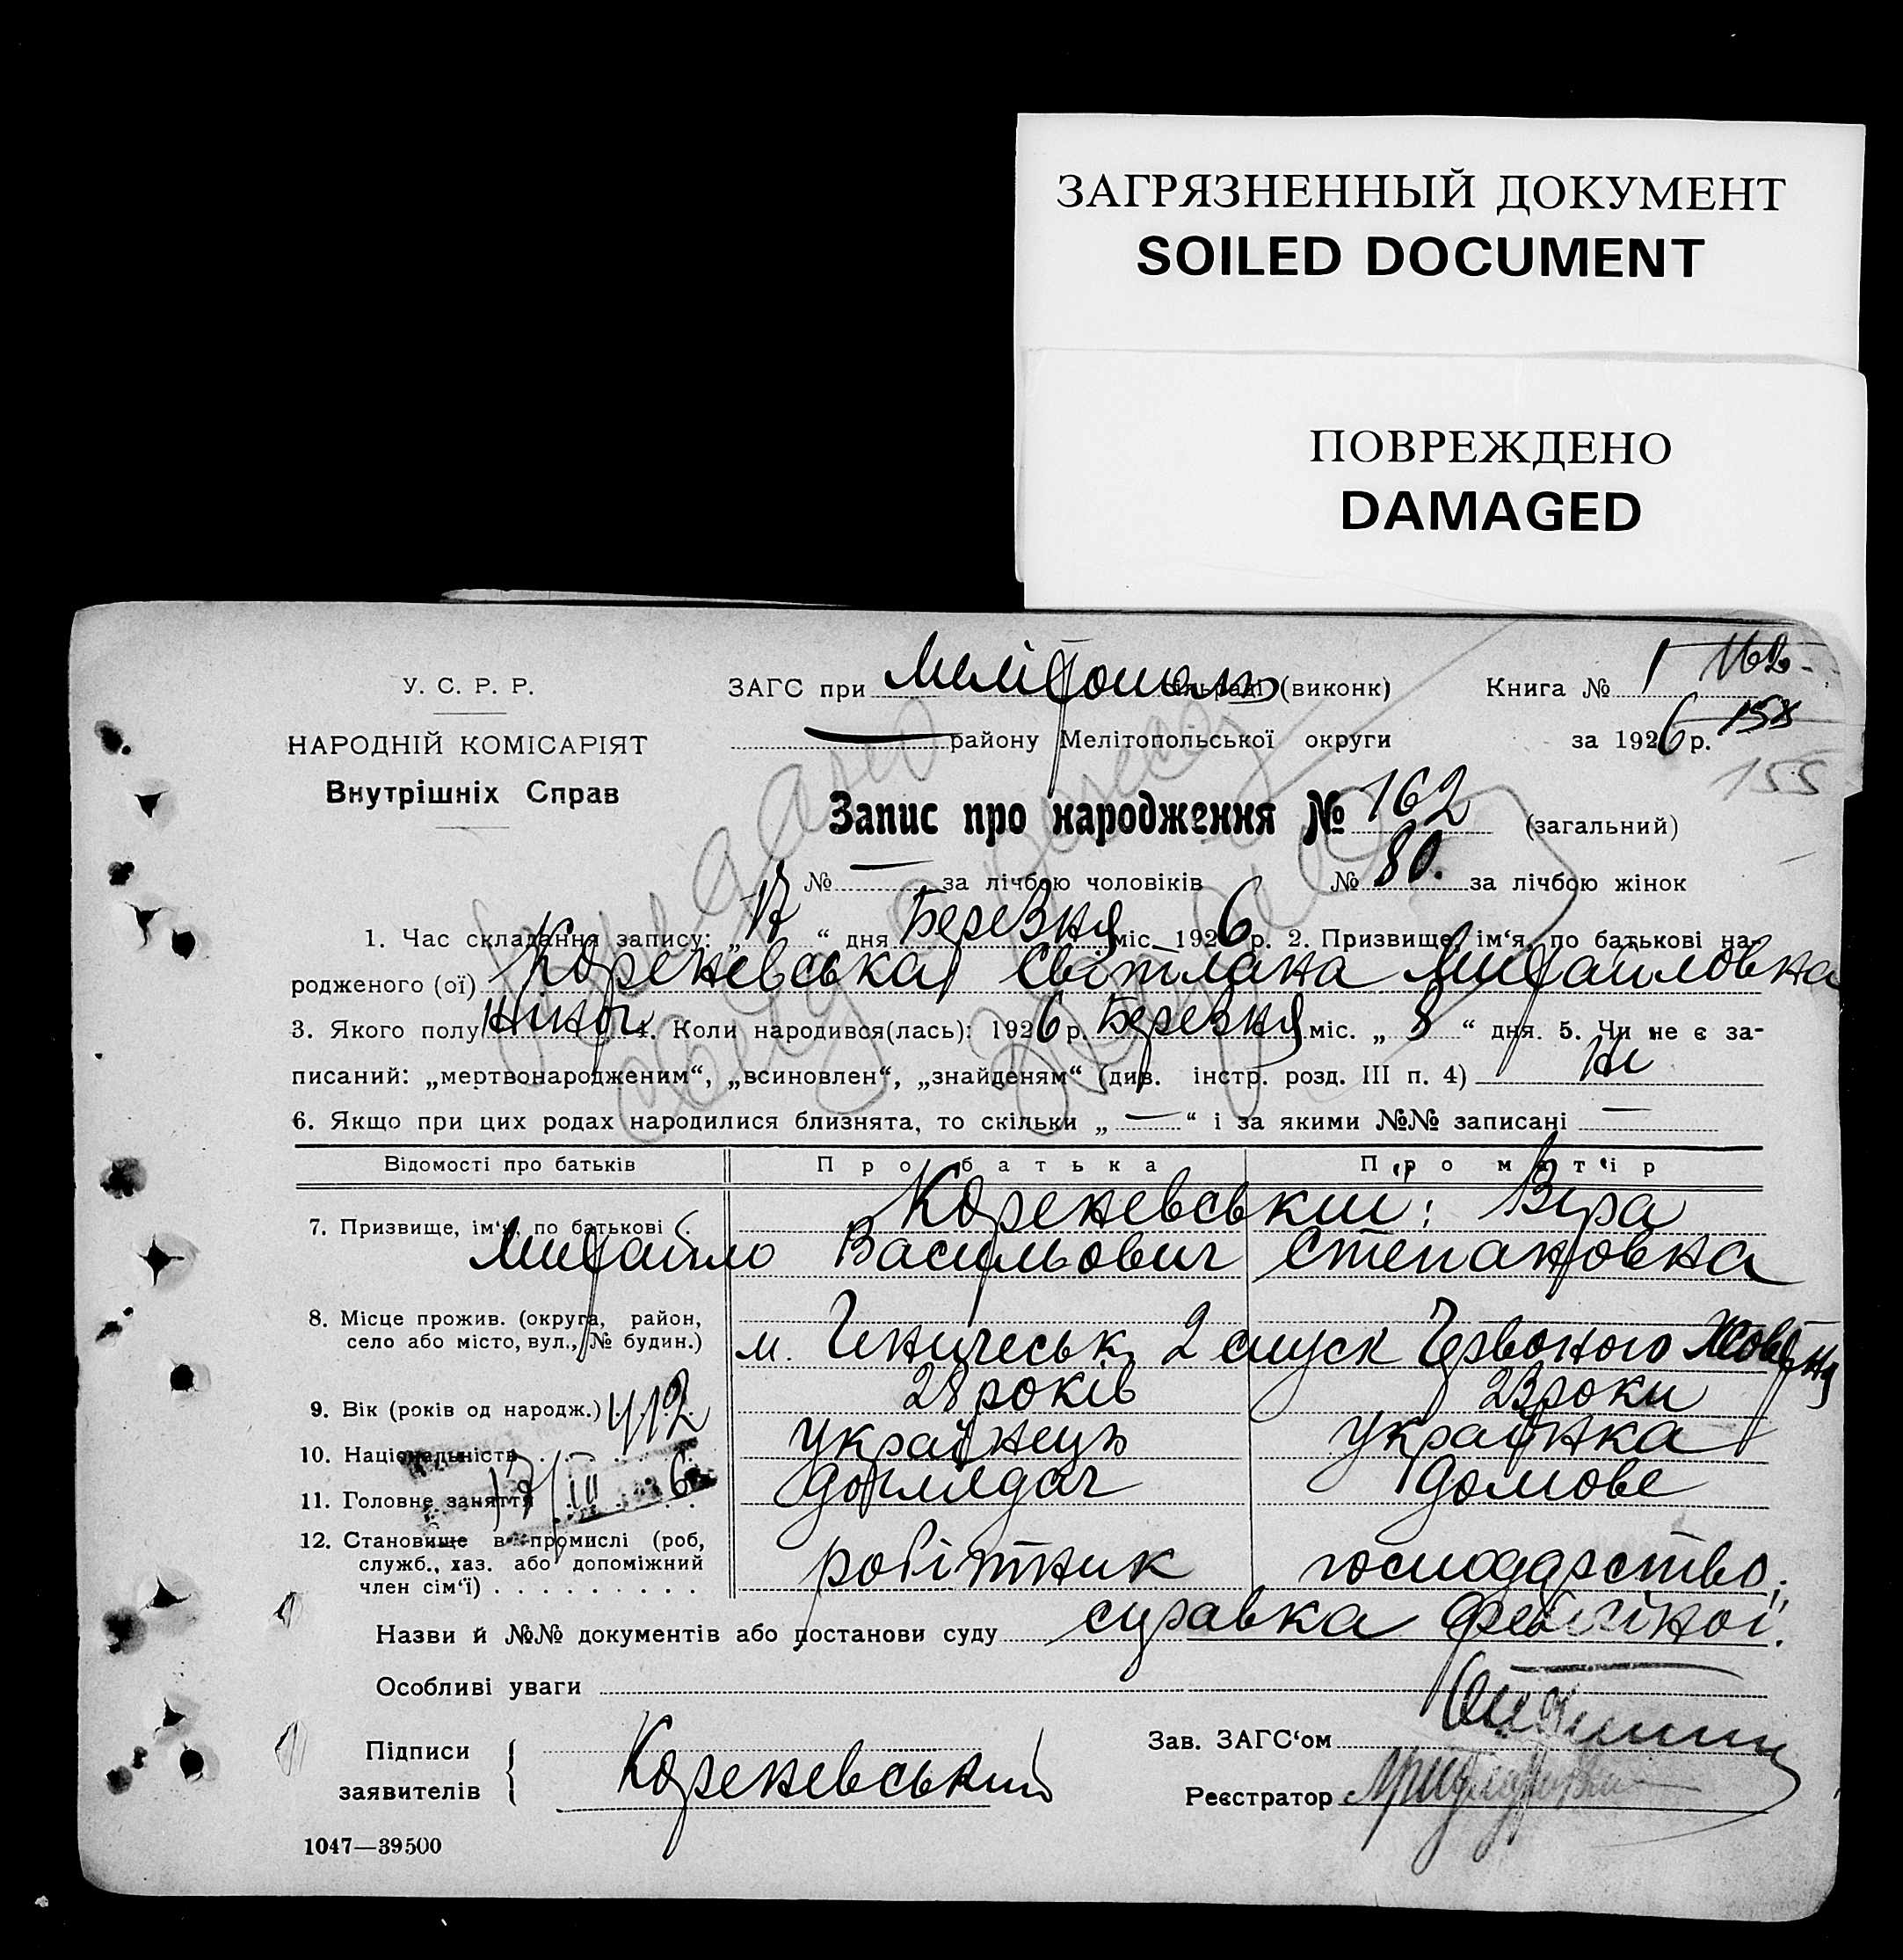 ЗАГРЯЗНЕННЫЙ ДОКУМЕНТ
SOILED DOCUMENT
ПОВРЕЖДЕНО
DAMAGED
У. С. Р. Р.
НАРОДНІЙ КОМІСАРІЯТ
Внутрішніх Справ
ЗАГС при Мелітополь сільраді (виконк)
району Мелітопольської округи
Книга № 1 162
за 1926 р. 158
155
Запис про народження № 162 (загальний)
№ — за лічбою чоловіків № 80. за лічбою жінок
1. Час складання запису: „ 17 “ дня Березня міс. 1926 р. 2. Призвище, ім‘я, по батькові на-
родженого (ої) Кореневська Світлана Михайловна
3. Якого полу жіноч 4. Коли народився(лась): 1926 р. Березня міс. „ 8 “ дня. 5. Чи не є за-
писаний: „мертвонародженим“, „всиновлен“, „знайденям“ (див. інстр. розд. III п. 4) Ні
6. Якщо при цих родах народилися близнята, то скільки „ — “ і за якими №№ записані —
Відомості про батьків Про батька Про матір
7. Призвище, ім‘я, по батькові Кореневський: Віра
Михайло Васильович Степановна
8. Місце прожив. (округа, район,
село або місто, вул., № будин.) м. Генічеськ, 2 спуск Червоного Жовтня
9. Вік (років од народж.) 28 років 23 роки
412
10. Національність українець українка
11. Головне заняття доглядач домове
17/III 6
12. Становище в промислі (роб,
служб., хаз. або допоміжний
член сім‘ї) робітник господарство;
Назви й №№ документів або постанови суду справка
Особливі уваги
Підписи
заявителів
Кореневський
Зав. ЗАГС‘ом
Реєстратор
1047—39500